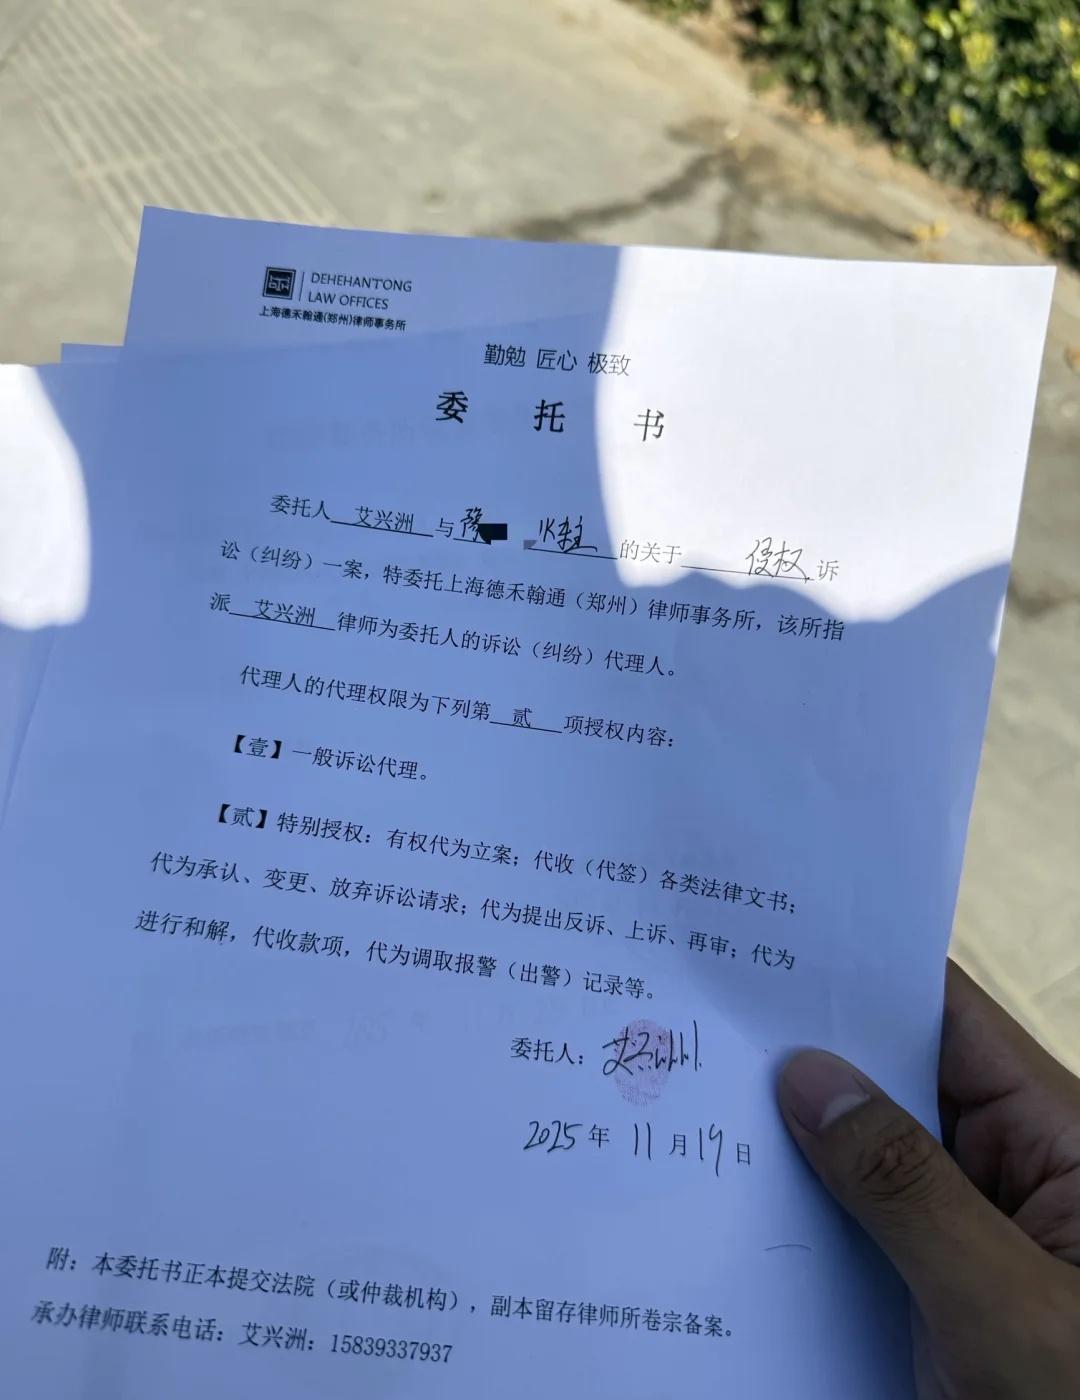 DEHEHANTONG
LAW OFFICES
上海德禾翰通(郑州)律师事务所
勤勉 匠心 极致
委 托 书
委托人 艾兴洲 与 豫 的关于 侵权 诉
讼（纠纷）一案，特委托上海德禾翰通（郑州）律师事务所，该所指
派 艾兴洲 律师为委托人的诉讼（纠纷）代理人。
代理人的代理权限为下列第 贰 项授权内容：
【壹】一般诉讼代理。
【贰】特别授权：有权代为立案；代收（代签）各类法律文书；
代为承认、变更、放弃诉讼请求；代为提出反诉、上诉、再审；代为
进行和解，代收款项，代为调取报警（出警）记录等。
委托人：艾兴洲
2025年 11月19日
附：本委托书正本提交法院（或仲裁机构），副本留存律师所卷宗备案。
承办律师联系电话：艾兴洲：15839337937